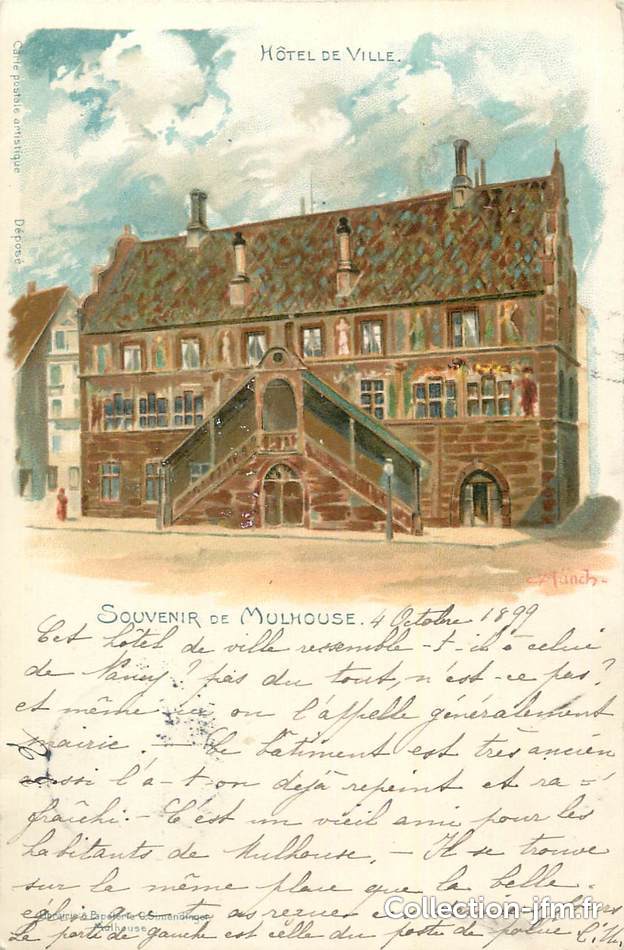 HÔTEL DE VILLE.
Carte postale artistique
Déposé
C Münch
SOUVENIR DE MULHOUSE. 4 Octobre 1899
Cet hôtel de ville ressemble-t-il à celui
de Nancy? pas du tout, n'est-ce pas?
et même ici on l'appelle généralement
mairie. — Le bâtiment est très ancien
aussi l'a-t-on déjà repeint et ra=
fraîchi. — C'est un vieil ami pour les
habitants de Mulhouse. — Il se trouve
sur la même place que la belle
as reçue
Librairie & Papeterie G. Simendinger
Mulhouse
La porte de gauche est celle du poste de police
Collection-jfm.fr